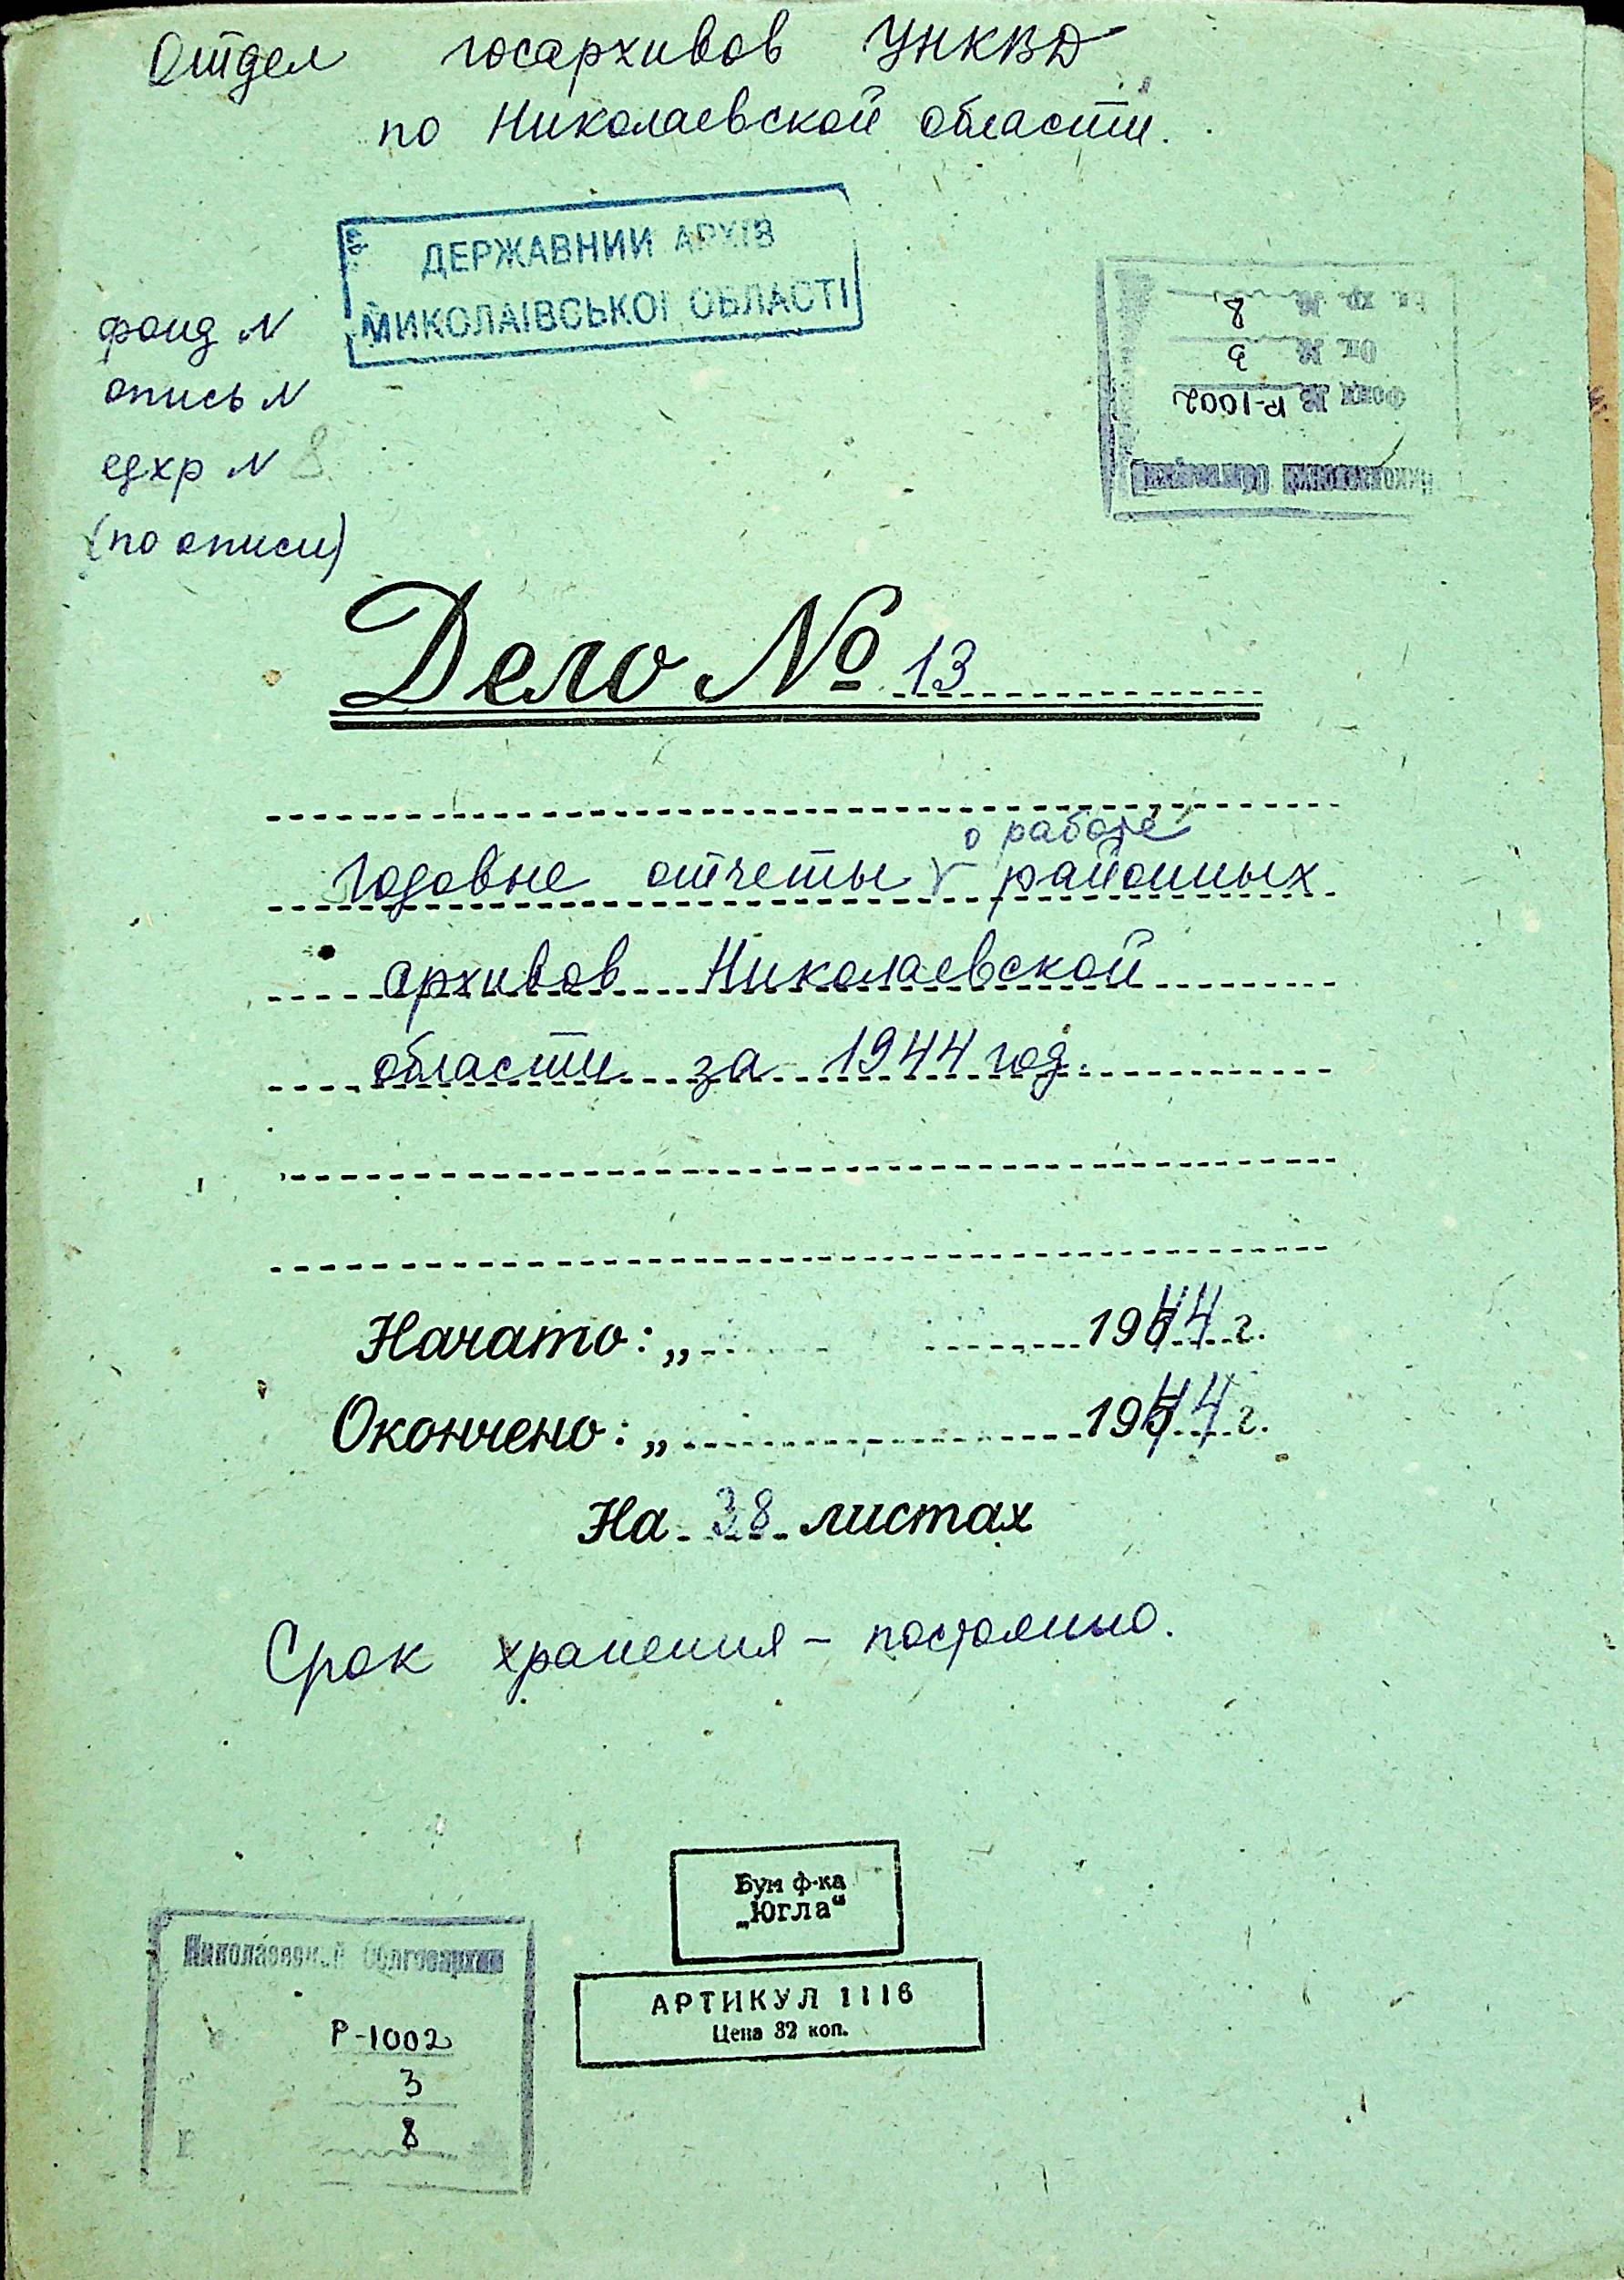 Отдел госархивов УНКВД
по Николаевской области.
ДЕРЖАВНИЙ АРХІВ
МИКОЛАЇВСЬКОЇ ОБЛАСТІ
фонд N
опись N
едхр N 8
(по описи)
Николаевский Облгосархив
Фонд № Р-1002
Оп. № 3
Ед. хр. № 8
Дело № 13
о работе
Годовые отчеты районных
архивов Николаевской
области за 1944 год.
Начато: „ 1944 г.
Окончено: „ 1944 г.
На 38 листах
Срок хранения – постоянно.
Бум ф-ка
„Югла“
АРТИКУЛ 1116
Цена 32 коп.
Николаевский Облгосархив
Р-1002
3
8